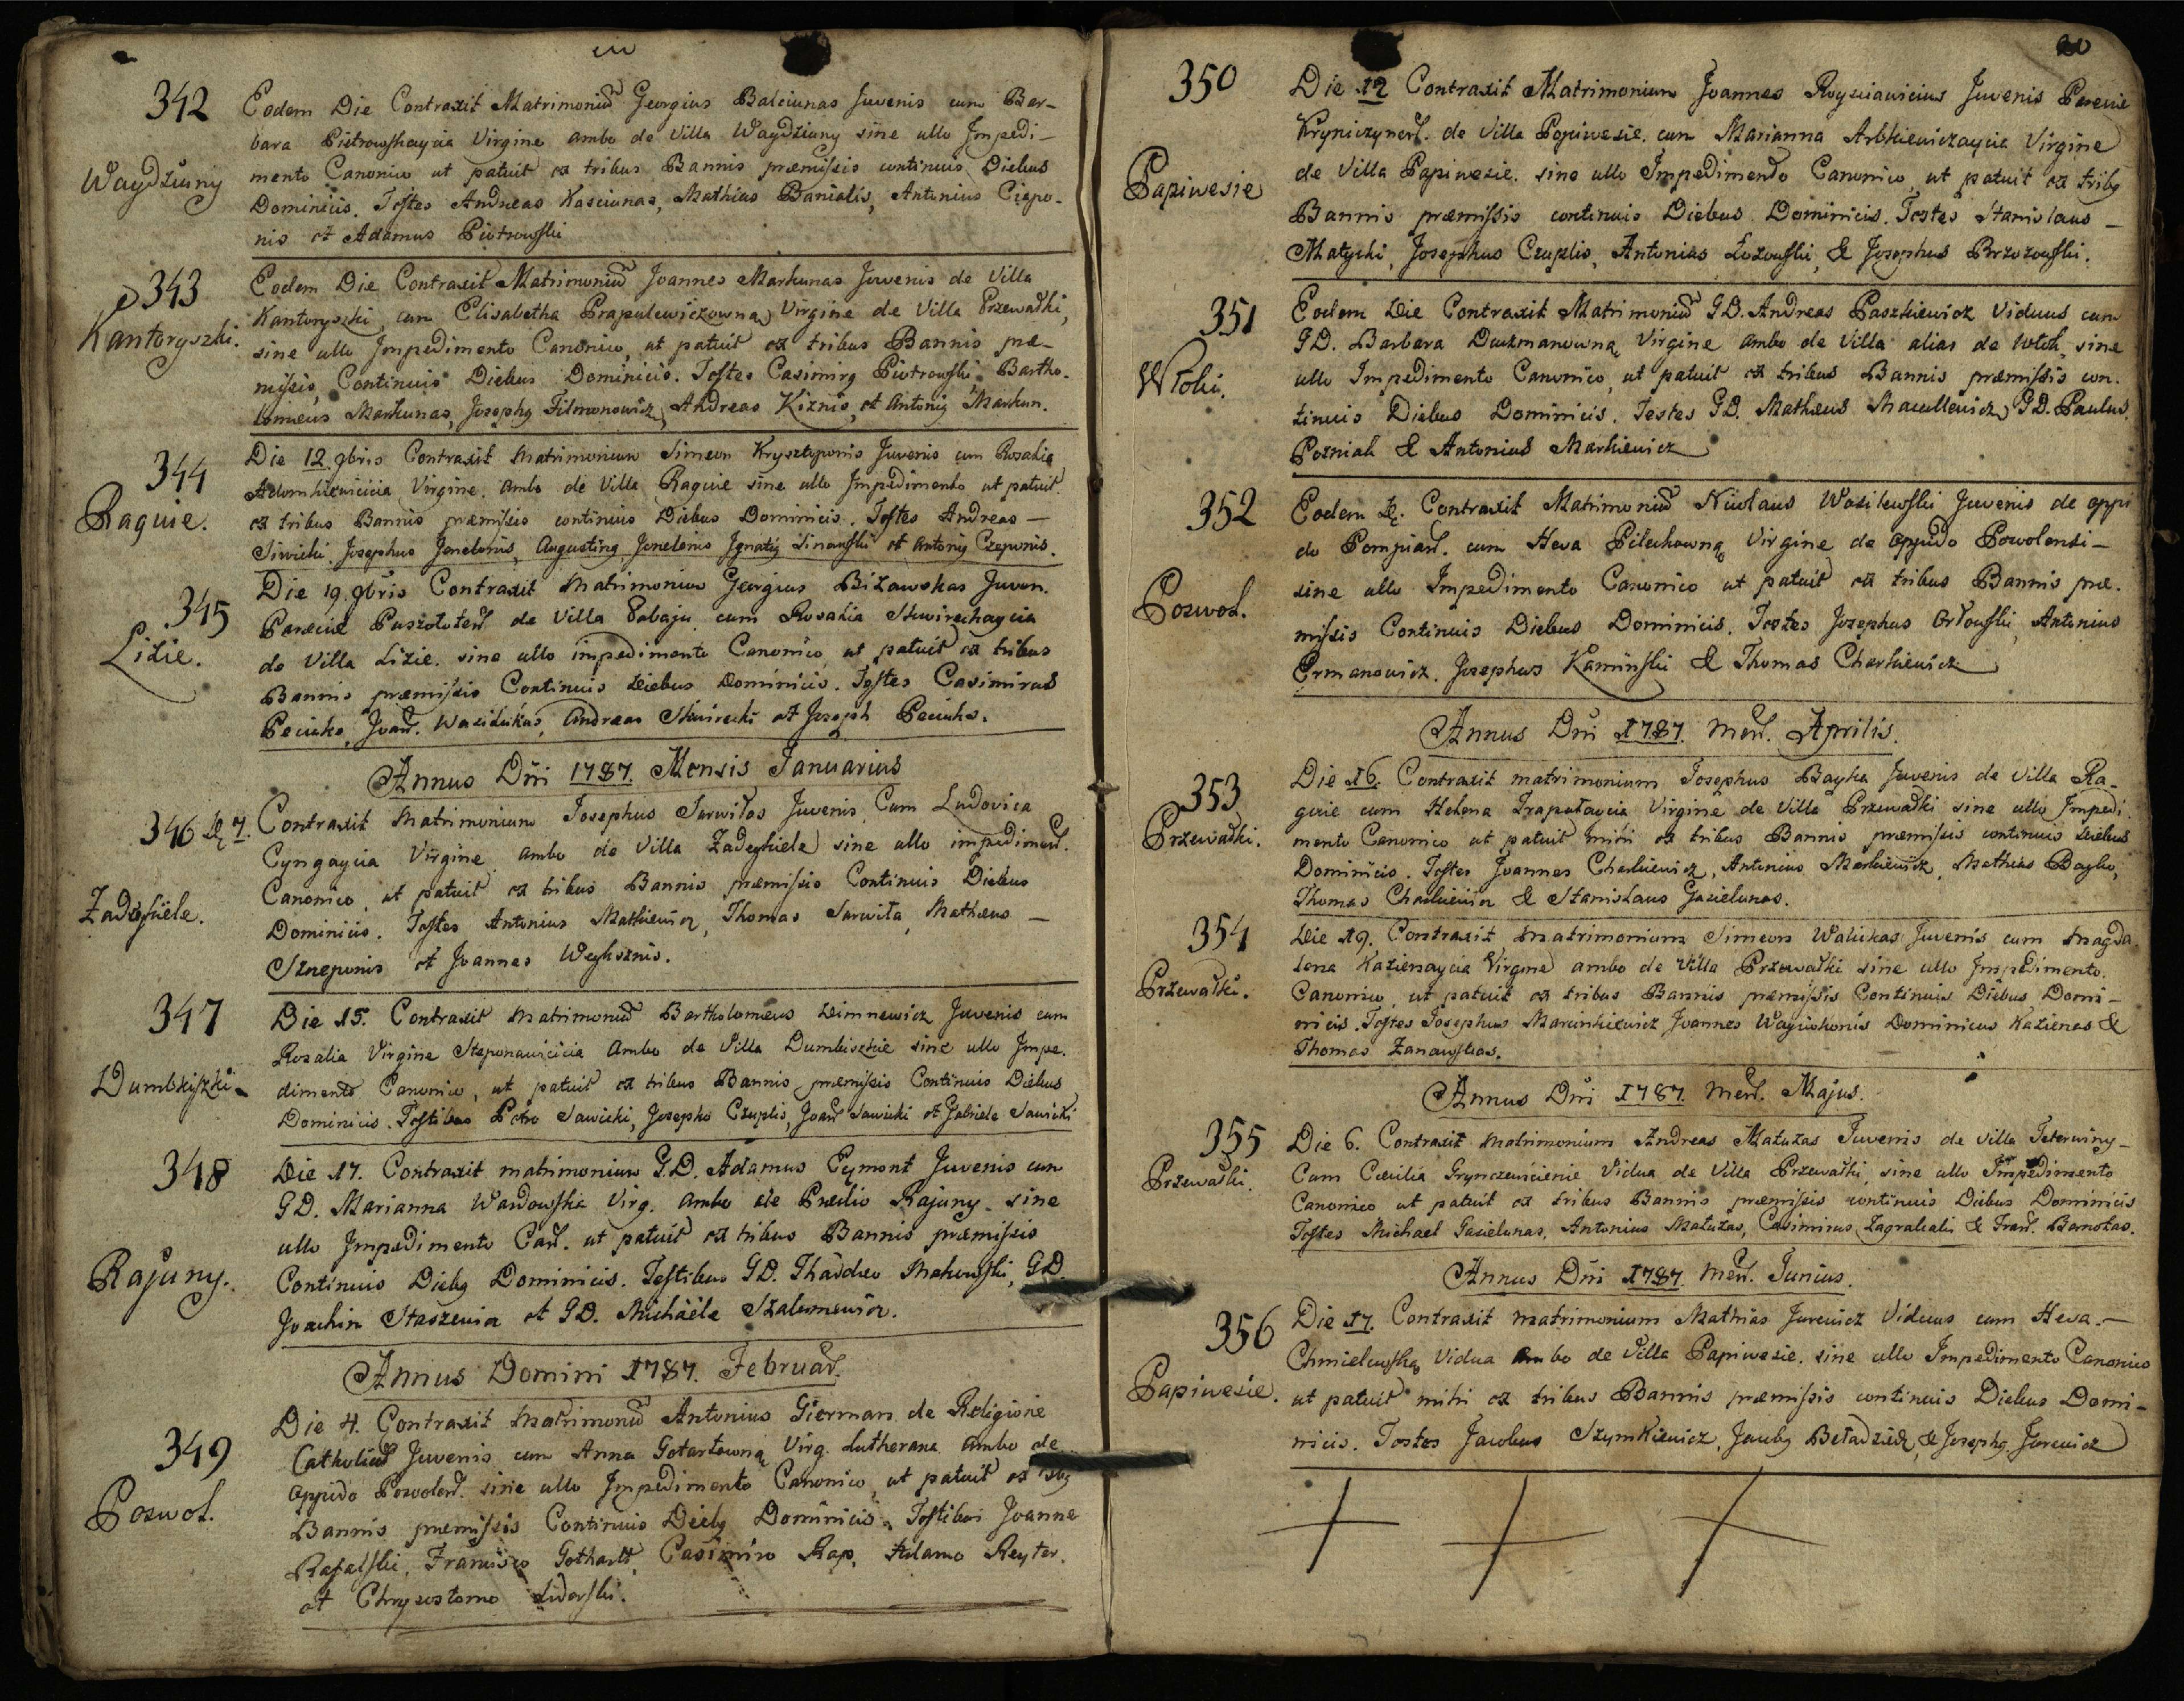 342
Wagdziuny
Eodem Die Contraxit Matrimoniu Georgius Balciunas Juvenis cum Bar-
bara Pietrowskaycia Virgine ambo de Villa Wagdziuny sine ullo Impedi-
mento Canonico ut patuit ex tribus Bannis præmissis continuis Diebus
Dominicis. Testes Andreas Kasciunas, Mathias Banialis, Antonius Ciapo-
nis et Adamus Piotrowski
343
Kantoryszki.
Eodem Die Contraxit Matrimoniu Joannes Markunas Juvenis de Villa
Kantoryszki, cum Elisabetha Prapulewiczowna Virgine de Villa Przewałki,
sine ullo Impedimento Canonico, ut patuit ex tribus Bannis præ-
missis, Continuis Diebus Dominicis. Testes Casimirg Piotrowski Bartho-
lomeus Markunas, Josephg Filmonowicz, Andreas Kiznis, et Antonig Markun.
344
Raguie.
Die 12. 9bris Contraxit Matrimonium Simeon Krysztoponis Juvenis cum Rosalia
Adomkiewicicia Virgine. ambo de Villa Raguie sine ullo Impedimento ut patuit
ex tribus Bannis præmissis continuis Diebus Dominicis. Testes Andreas —
Siwicki. Josephus Jenelonis, Augusting Jenelonis Ignatig Sinawski et Antonig Czeponis.
345
Lizie.
Die 19. 9bris Contraxit Matrimonium Georgius Bizawskas Juven.
Parœciæ Puszołoten. de Villa Gabaju cum Rosalia Skwireckaycia
de Villa Lizie. sine ullo impedimento Canonico, ut patuit ex tribus
Bannis præmissis Continuis Diebus Dominicis. Testes Casimirus
Peciuko, Joan. Wasiliukas, Andreas Skwirecki et Joseph Peciuko.
Annus Dni 1787. Mensis Januarius
346 De 7.
Zadeykiele.
Contraxit Matrimonium Josephus Jarwiłas Juvenis, Cum Ludovica
Cyngaycia Virgine ambo de Villa Zadeykiele sine ullo impediment.
Canonico, ut patuit ex tribus Bannis præmissis Continuis Diebus
Dominicis. Testes Antonius Matkiewicz, Thomas Jarwiła, Matheus —
Szneponis et Joannes Weyksznis.
347
Dumbliszki.
Die 15. Contraxit Matrimoniu Bartholomeus Dimnewicz Juvenis cum
Rosalia Virgine Steponawicicia ambo de Villa Dumbliszkie sine ullo Impe-
dimento Canonico, ut patuit ex tribus Bannis præmissis Continuis Diebus
Dominicis. Testibus Petro Sawicki, Josepho Czuplis, Joan Sawicki et Gabriele Sawicki
348
Rajuny.
Die 17. Contraxit matrimonium G.D. Adamus Eymont Juvenis cum
G.D. Marianna Wardowska Virg. ambo de Prædio Rajuny. sine
ullo Impedimento Can. ut patuit ex tribus Bannis præmissis
Continuis Diebg Dominicis. Testibus G.D. Thaddeo Makowski, G.D.
Joachim Staszewicz et G.D. Michaële Szalemewicz.
Annus Domini 1787. Februar.
349
Poswol.
Die 4. Contraxit Matrimoniu Antonius Gierman de Religione
Catholicus Juvenis cum Anna Gotartowna Virg. Lutherana ambo de
Oppido Poswolen. sine ullo Impedimento Canonico, ut patuit ex
Bannis præmissis Continuis Diebg Dominicis. Testibus Joanne
Rafalski, Francisco Gothardt, Casimiro Rap, Adamo Reyter,
et Chrysostomo Siderski.
350
Papiwesie
Die 12 Contraxit Matrimonium Joannes Roysciawicius Juvenis Parœciæ
Krynicznen. de Villa Popiwesie. cum Marianna Arbkiewiczaycia Virgine
de Villa Papiwesie. sine ullo Impedimento Canonico, ut patuit ex tribg
Bannis præmissis continuis Diebus Dominicis. Testes Stanislaus —
Matycki, Josephus Czuplis, Antonius Łozowski, & Josephus Brzozowski.
351
Wloki.
Eodem Die Contraxit Matrimoniu G.D. Andreas Paszkiewicz Viduus cum
G.D. Barbara Duxmanowna Virgine ambo de Villa alias de Włok, sine
ullo Impedimento Canonico, ut patuit ex tribus Bannis præmissis con-
tinuis Diebus Dominicis. Testes G.D. Matheus Macullewicz, G.D. Paulus
Pozniak & Antonius Markiewicz
352
Poswol.
Eodem De. Contraxit Matrimoniu Nicolaus Wasilewski Juvenis de oppi
do Pompian. cum Heva Pilechowna Virgine de Oppido Powolensi —
sine ullo Impedimento Canonico ut patuit ex tribus Bannis præ-
missis Continuis Diebus Dominicis. Testes Josephus Orłowski, Antonius
Ermanowicz. Josephus Kaminski & Thomas Charkiewicz
Annus Dni 1787. Men. Aprilis.
353
Przewałki.
Die 16. Contraxit matrimonium Josephus Bayka Juvenis de Villa Ra-
guie cum Helena Trapułaycia Virgine de Villa Przewałki sine ullo Impedi-
mento Canonico ut patuit mihi ex tribus Bannis præmissis continuis Diebus
Dominicis. Testes Joannes Charkiewicz, Antonius Markiewicz, Mathias Bayko,
Thomas Charkiewicz & Stanislaus Gasielunas.
354
Przewałki.
Die 19. Contraxit Matrimonium Simeon Walukas Juvenis cum Magda-
lena Kazienaycia Virgine ambo de Villa Przewałki sine ullo Impedimento
Canonico, ut patuit ex tribus Bannis præmissis Continuis Diebus Domi-
nicis. Testes Josephus Marcinkiewicz Joannes Wayciskonis Dominicus Kazienas &
Thomas Zanawskas.
Annus Dni 1787. Men. Majus.
355
Przewałki.
Die 6. Contraxit Matrimonium Andreas Matuzas Juvenis de Villa Teterwiny —
Cum Cæcilia Grynczewicienie Vidua de Villa Przewałki, sine ullo Impedimento
Canonico ut patuit ex tribus Bannis præmissis continuis Diebus Dominicis
Testes Michael Gasielunas, Antonius Matuzas, Casimirus Zagrakalis & Fran. Barnotas.
Annus Dni 1787. Men. Junius.
356
Papiwesie.
Die 17. Contraxit Matrimonium Mathias Jurewicz Viduus cum Heva. —
Chmielewska Vidua Ambo de Villa Papiwesie. sine ullo Impedimento Canonico
ut patuit mihi ex tribus Bannis præmissis continuis Diebus Domi-
nicis. Testes Jacobus Szymkiewicz, Jacobg Beładzied, & Josephg Jurewicz